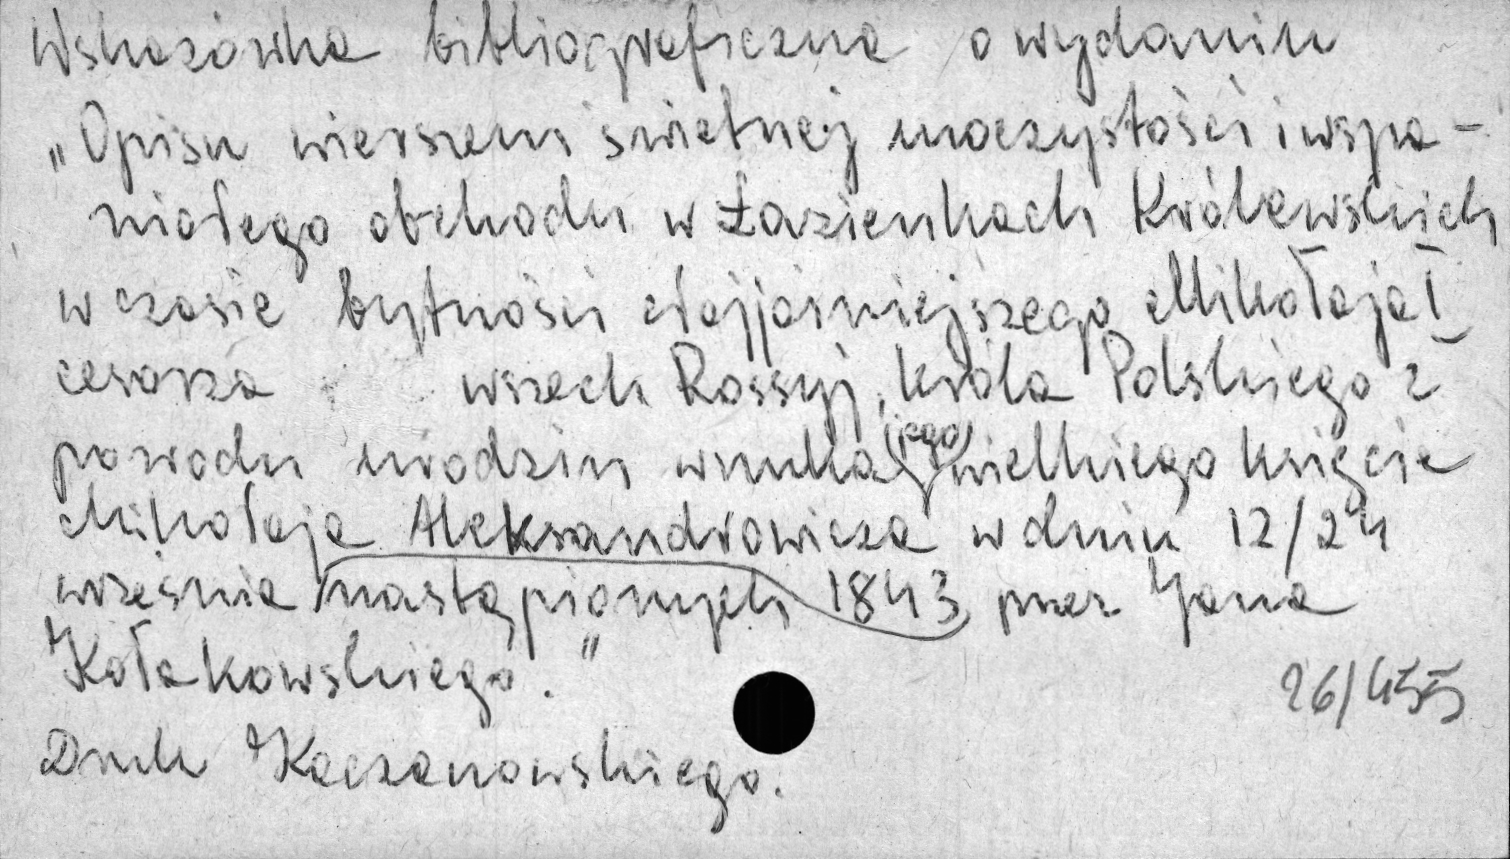 Wskazówka bibliograficzna o wydaniu
„Opisu wierszem świetnej uroczystości i wspa-
niałego obchodu w Łazienkach Królewskich
w czasie bytności Najjaśniejszego Mikołaja I
cesarza wszech Rossyj, króla Polskiego z
powodu urodzin wnuka jego wielkiego księcia
Mikołaja Aleksandrowicza w dniu 12/24
września nastąpionych 1843 przez Jana
Kołakowskiego."
26/455
Druk Kaczanowskiego.